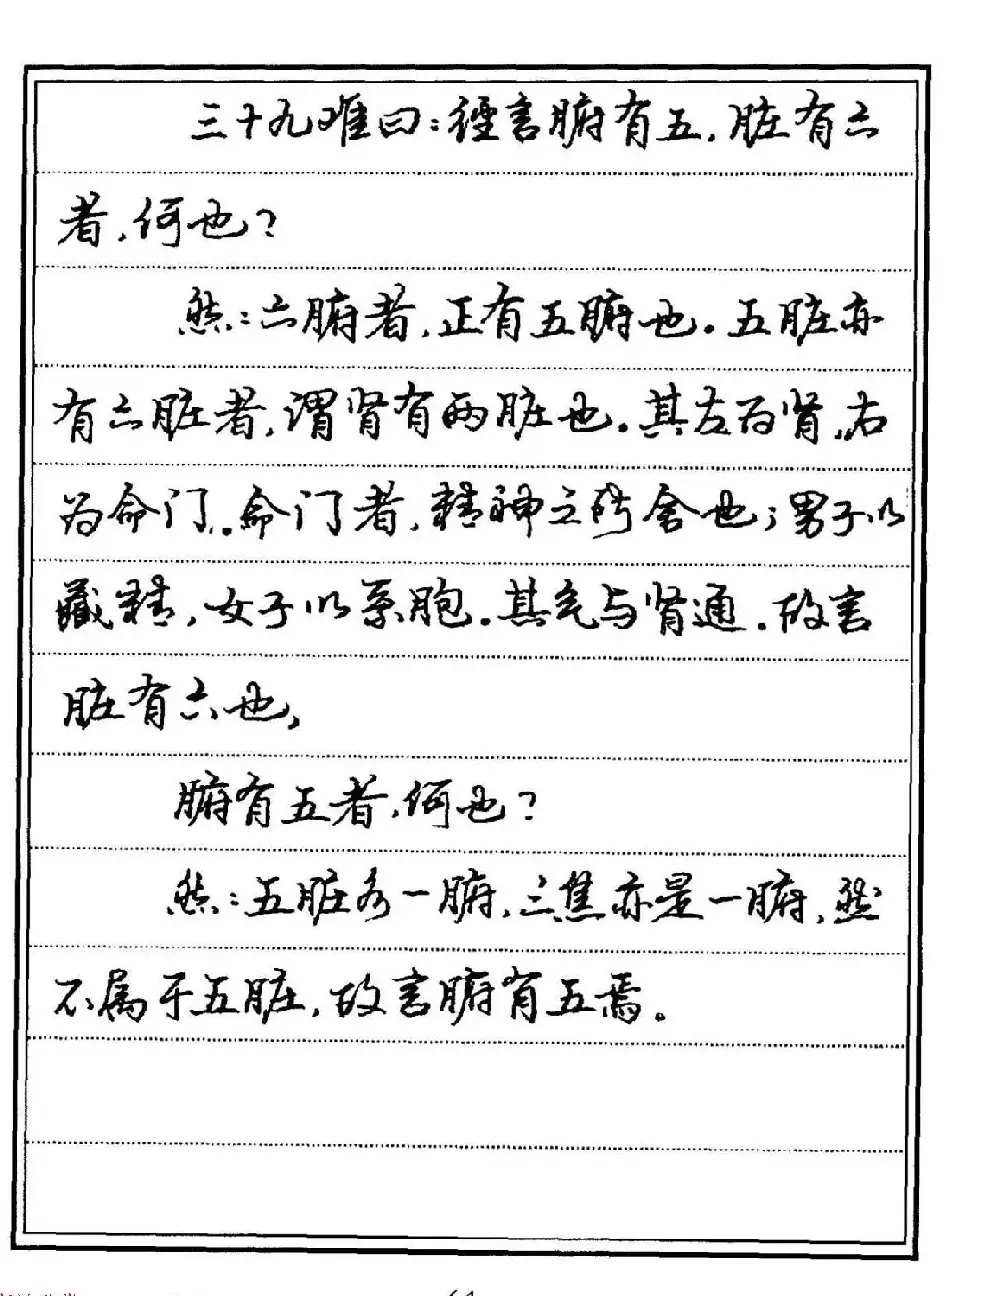 三十九难曰：经言腑有五，脏有六
者，何也？
然：六腑者，正有五腑也。五脏亦
有六脏者，谓肾有两脏也。其左为肾，右
为命门。命门者，精神之所舍也；男子以
藏精，女子以系胞。其气与肾通。故言
脏有六也，
腑有五者，何也？
然：五脏各一腑，三焦亦是一腑，然
不属于五脏，故言腑有五焉。